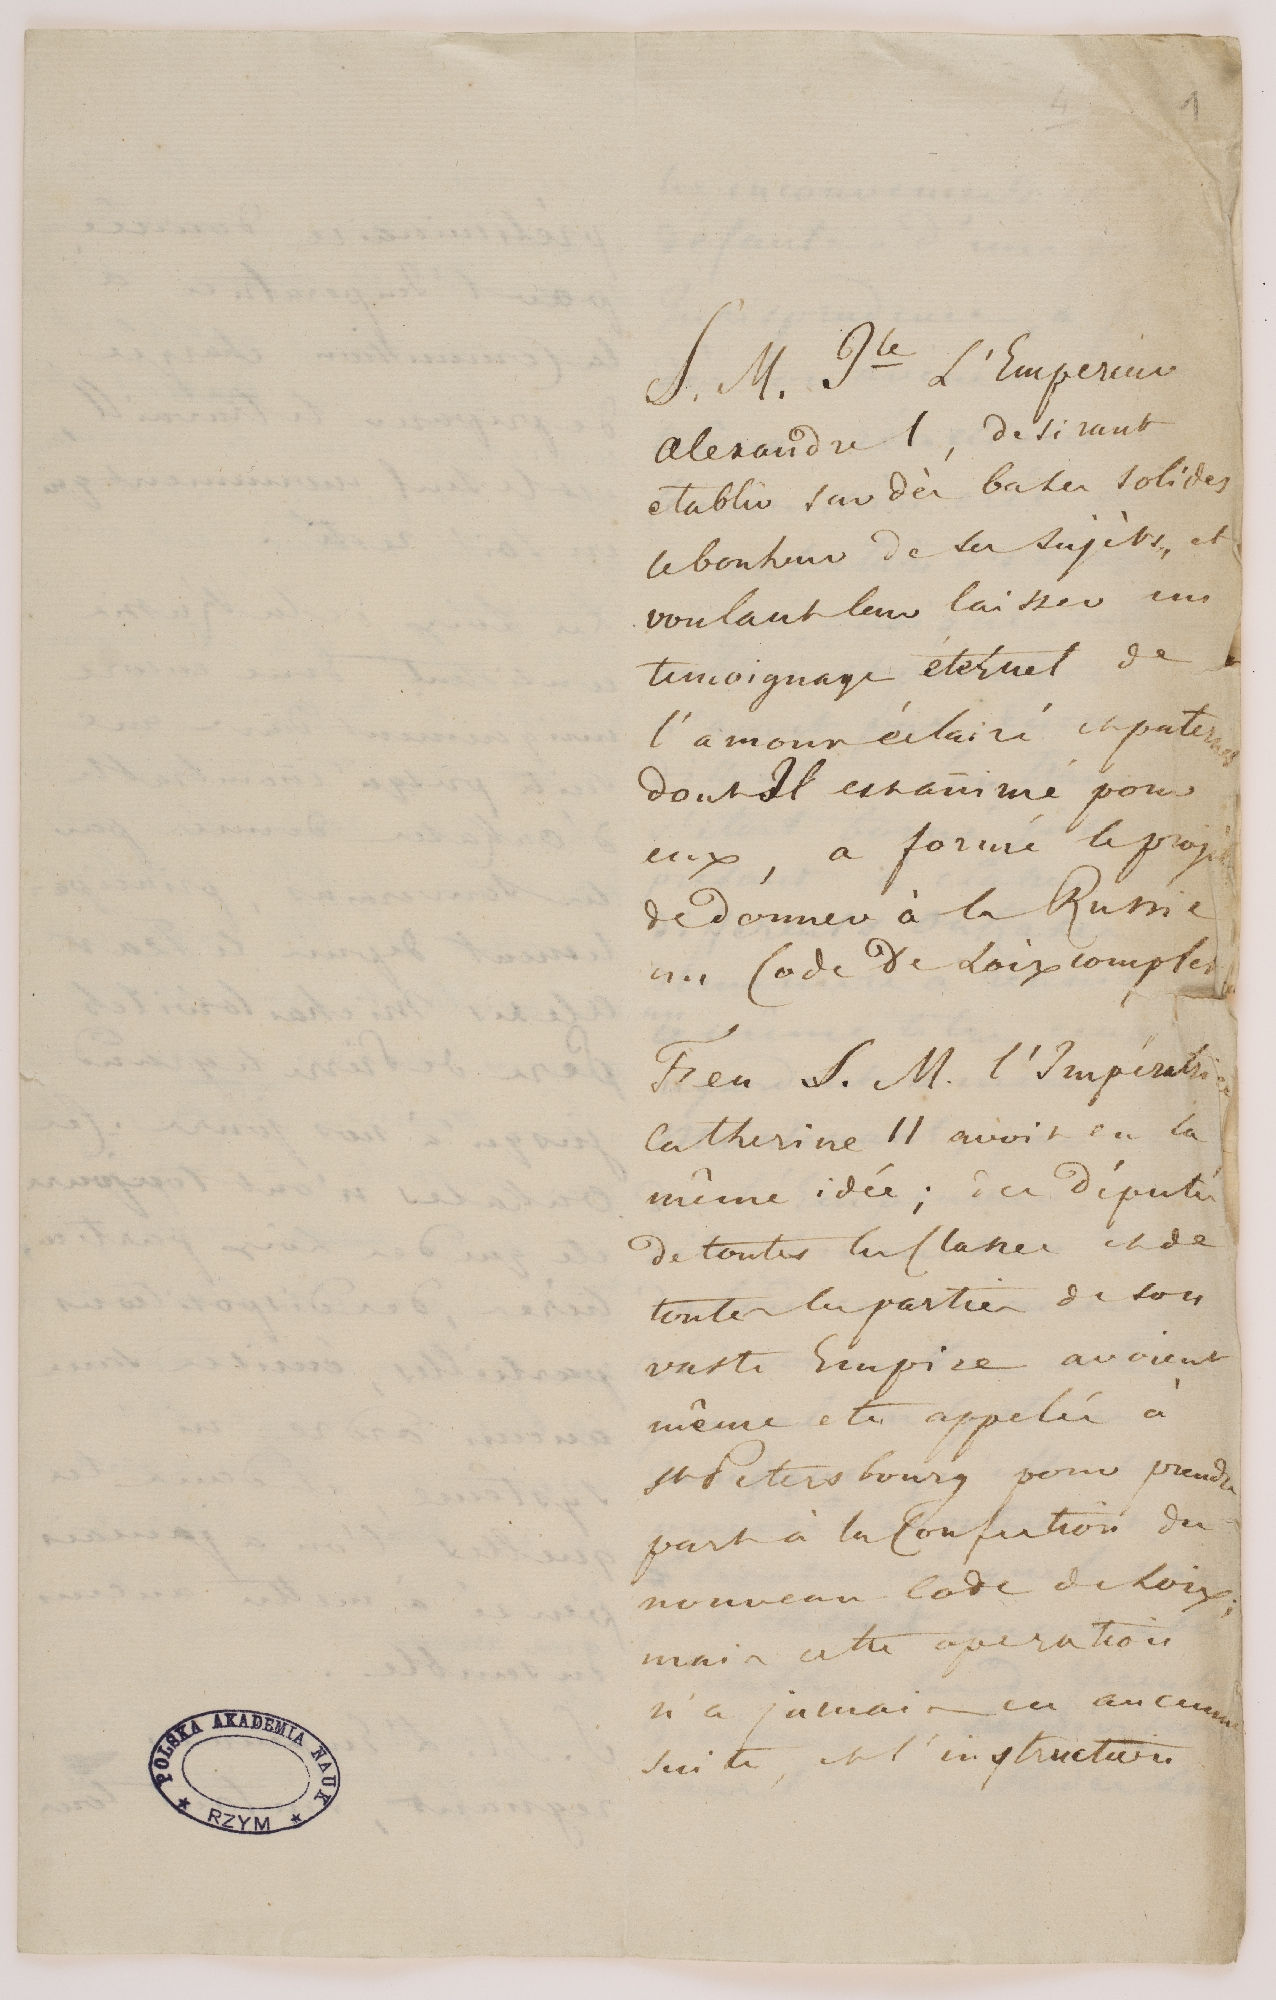 4 1
S. M. Ile L'Empereur
Alexandre I, desirant
etablir sur des bases solides
le bonheur de ses sujèts, et
voulant leur laisser un
temoignage éternel de
l'amour éclairé et paternel
dont Il est animé pour
eux, a formé le projet
de donner à la Russie
un Code De Loix complet
Feu S. M. l'Impératrice
Catherine II avoit eu la
même idée; des Députés
de toutes les Classes et de
toutes les parties de son
vaste Empire avoient
même eté appelés à
St Petersbourg pour prendre
part à la Confection du
nouveau Code de Loix;
mais cette operation
n'a jamais eu aucune
suite, et l'instruction
POLSKA AKADEMIA NAUK
RZYM